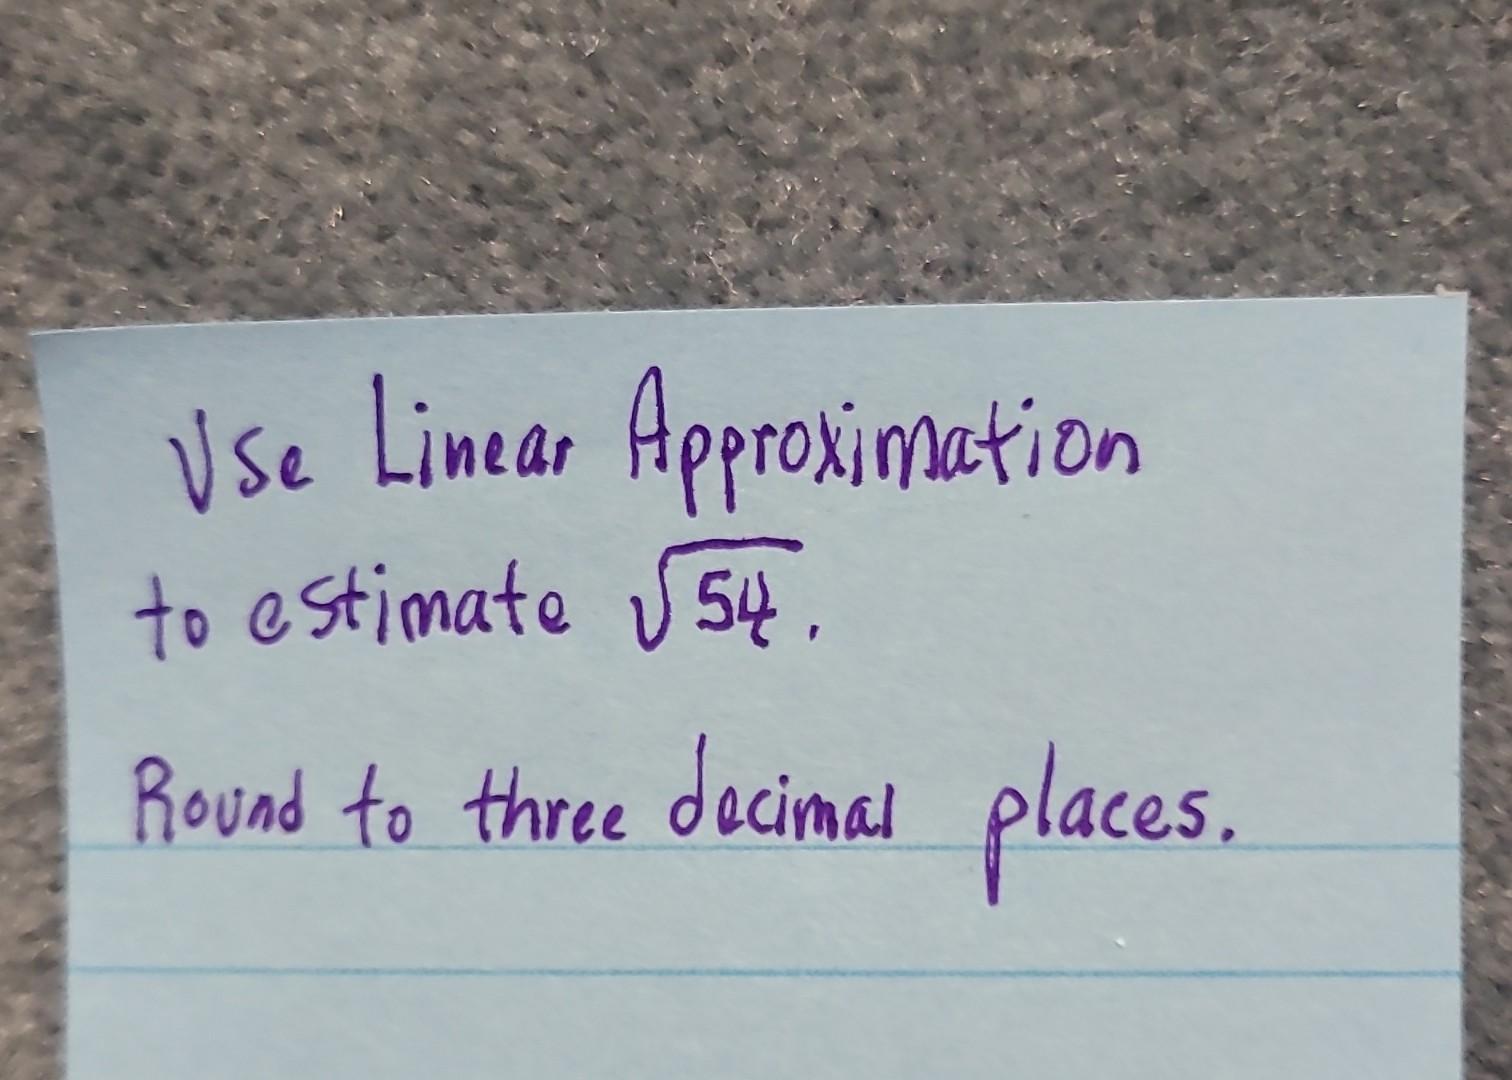 Use Linear Approximation
to estimate √54.
Round to three decimal places.